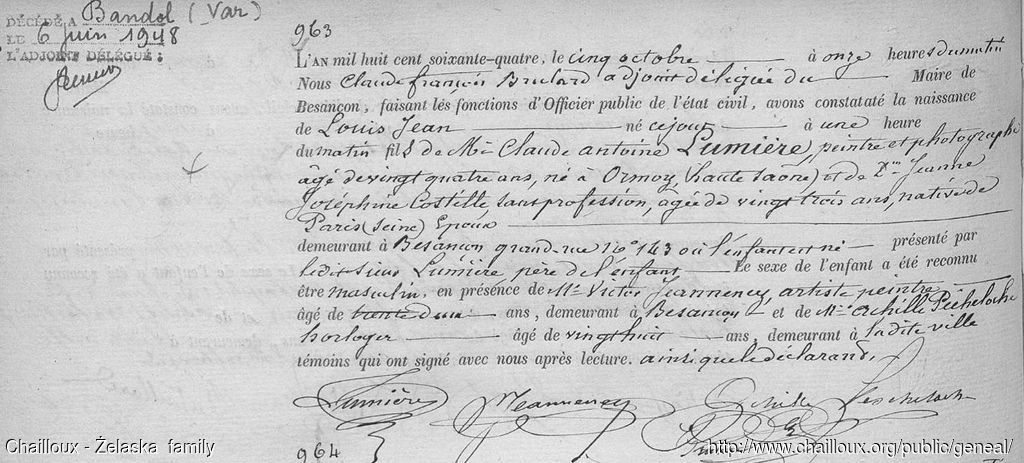 DÉCÉDÉ A Bandol (Var)
LE 6 juin 1948
L'ADJOINT DÉLÉGUÉ:
963
L'AN mil huit cent soixante-quatre, le cinq octobre à onze heures du matin
Nous Claude françois Brulard adjoint délégué du Maire de
Besançon, faisant les fonctions d'Officier public de l'état civil, avons constataté la naissance
de Louis Jean né ce jour à une heure
du matin fils de Mr Claude Antoine Lumière, peintre et photographe
âgé de vingt quatre ans, né à Ormoy, (haute Saône) et de De Jeanne
Joséphine Costille, sans profession, agée de vingt trois ans, native de
Paris (Seine) Epoux
demeurant à Besançon grande rue No 143 où l'enfant est né présenté par
ledit sieur Lumière père de l'enfant Le sexe de l'enfant a été reconnu
être masculin, en présence de Mr Victor Jeanneney, artiste peintre
âgé de trente deux ans, demeurant à Besançon et de Mr Achille Pécheloche
horloger âgé de vingt huit ans, demeurant à ladite ville
témoins qui ont signé avec nous après lecture. ainsi que le déclarant,
Lumière Jeanneney Achille Pescheloche
964
Chailloux - Želaska family http://www.chailloux.org/public/geneal/